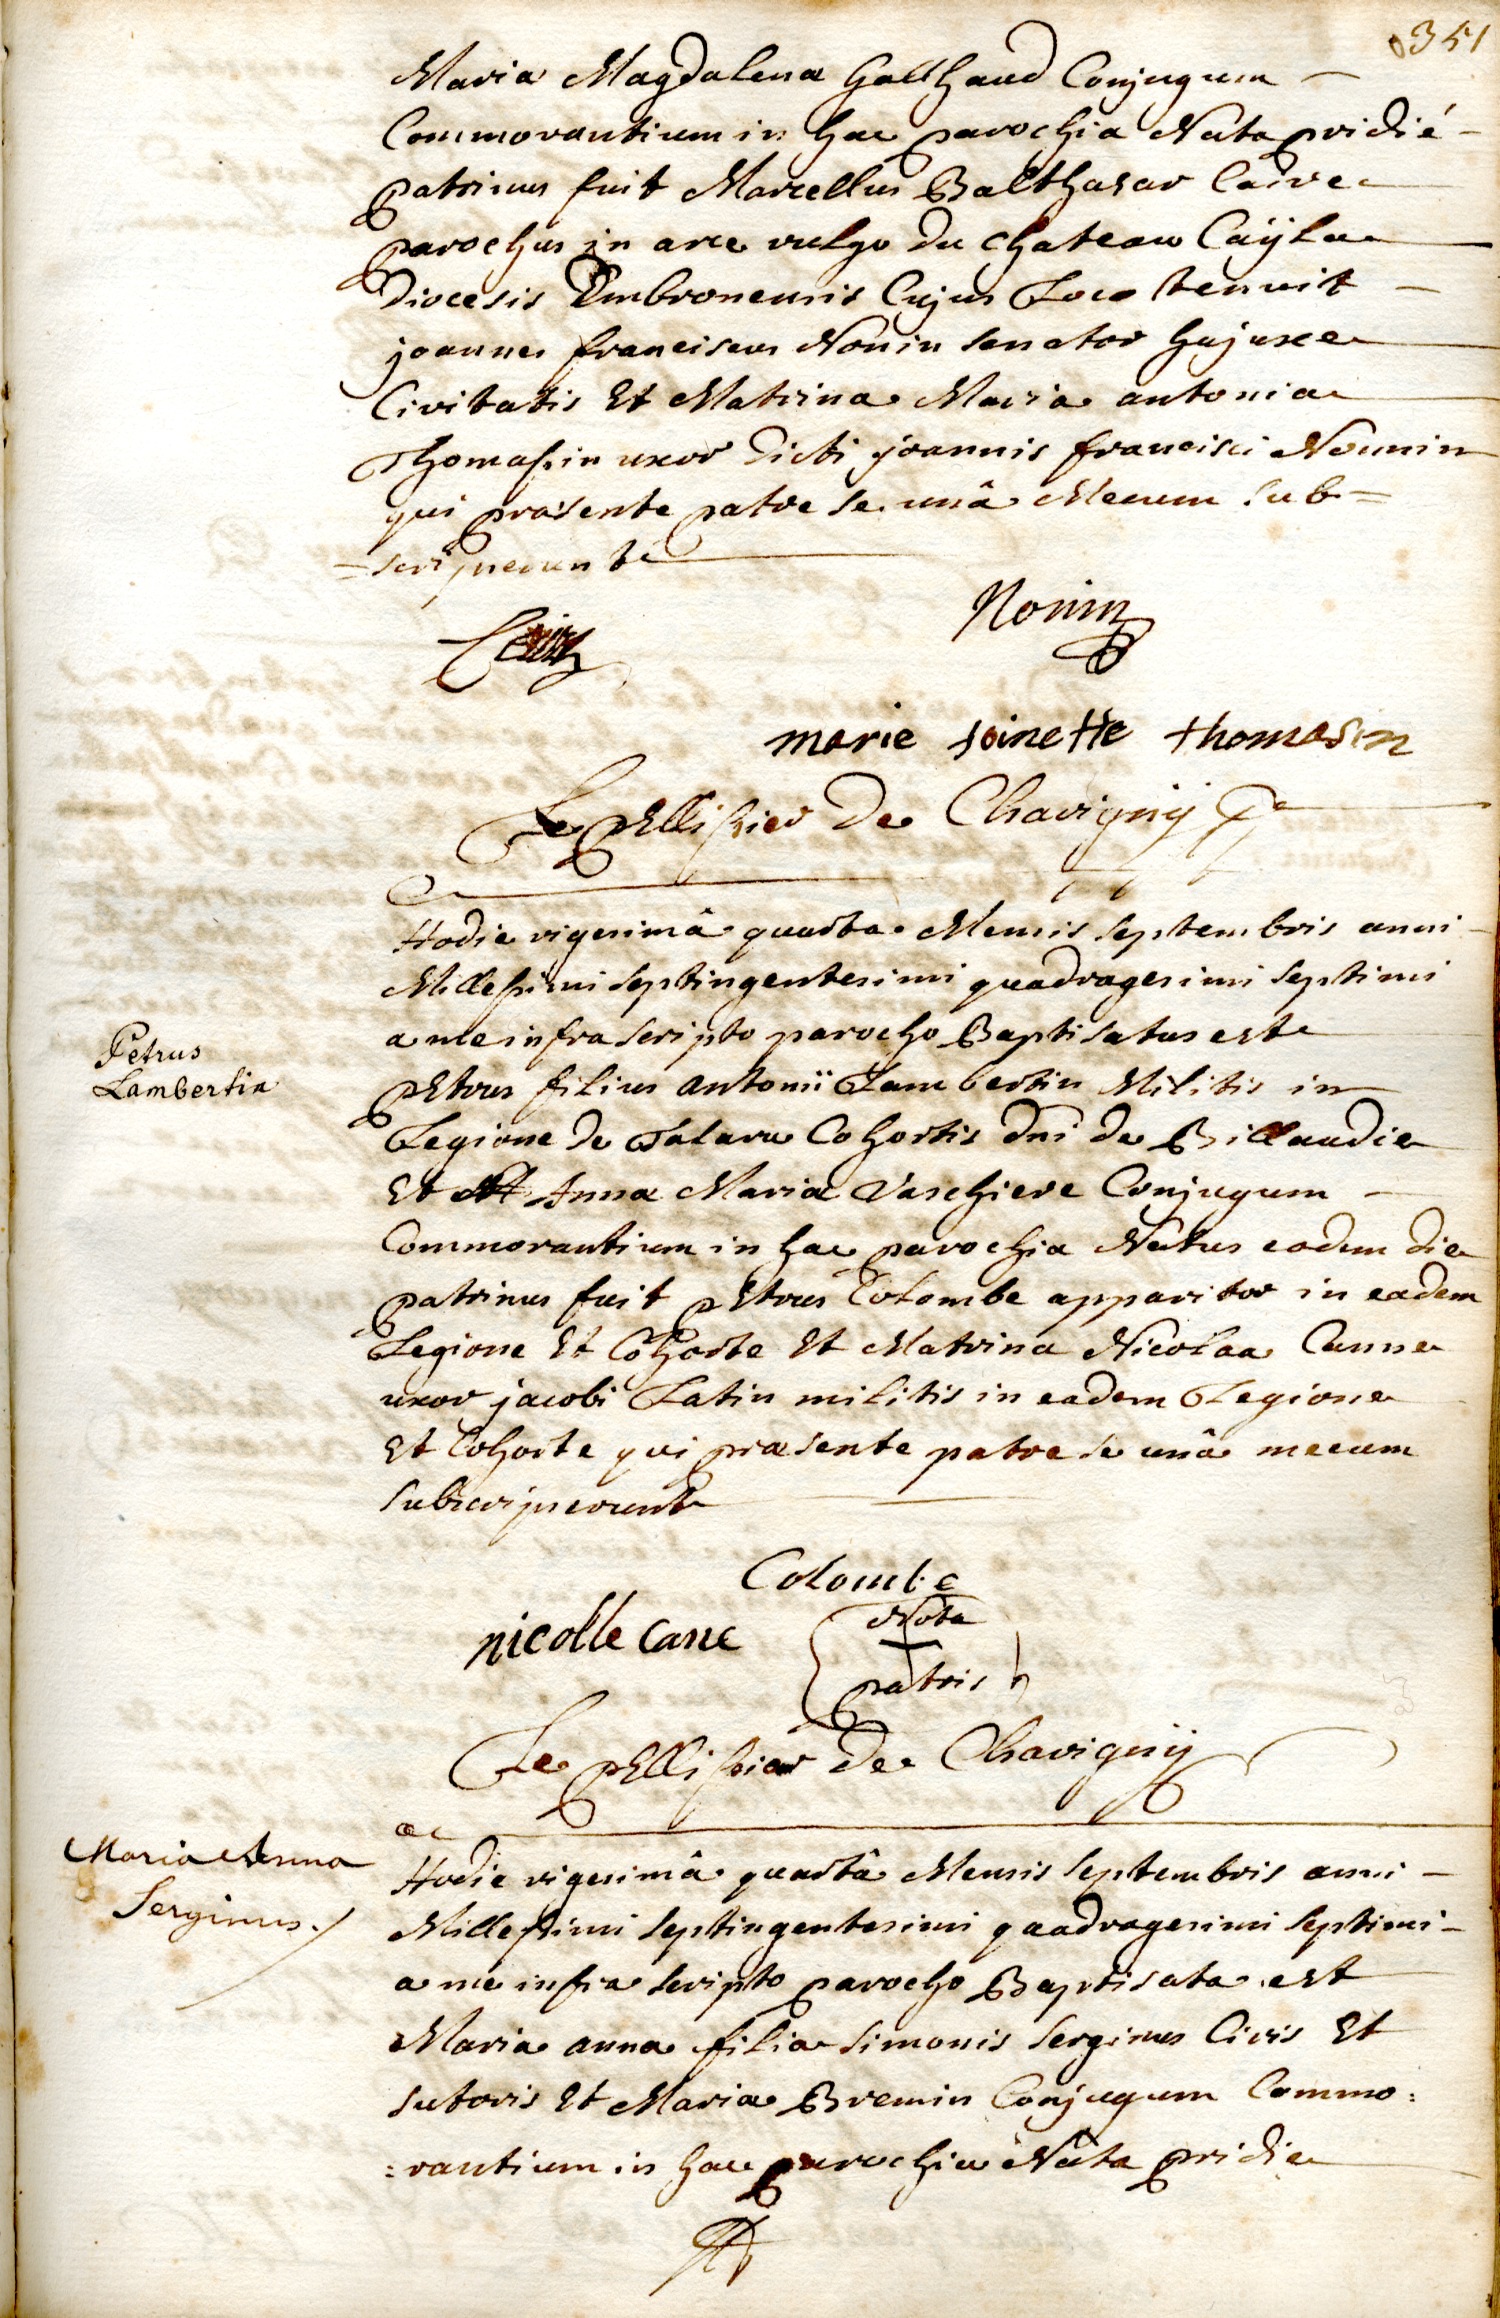 351
Maria Magdalena Galthaud Conjugum
Commorantium in hac parochia Nata pridié
patrinus fuit Marcellus Balthasar Caire
parochus in arce vulgo du chateau Caÿla
Diocesis Embronensis Cujus Loco tenuit
joannes franciscus Nonin senator hujusce
Civitatis Et Matrina Maria antonia
Thomassin uxor Dicti joannis francisci Nonnin
qui præsente patre se unâ Mecum sub=
=scripserunt
Nonin
marie toinette thomasin
Le pEllissier De Chavignÿ
Hodie vigesimâ quarta Mensis septembris anni
Millessimi septingentesimi quadragesimi septimi
a me infra scripto parocho Baptisatus est
Petrus
Lambertin
pEtrus filius antonii Lambertin Militis in
Legione de Talaru Cohortis dni de Billaudie
Et Anna Maria Vaschiere Conjugum
Commorantium in hac parochia Natus eodem die
patrinus fuit pEtrus Colombe apparitor in eadem
Legione Et Cohorte Et Matrina Nicolaa Canne
uxor jacobi Latin militis in eadem Legione
Et Cohorte qui præsente patre se unâ mecum
subscripserunt
Colombe
nicolle cane
Nota
patris
Le pEllissier De Chavignÿ
Maria Anna
Serginus
Hodie vigesimâ quartâ Mensis septembris anni
Millessimi septingentesimi quadragesimi septimi
a me infra scripto parocho Baptisata est
Maria anna filia simonis serginus Civis Et
sutoris Et Maria Bremin Conjugum Commo:
:rantium in hac parochia Nata pridie